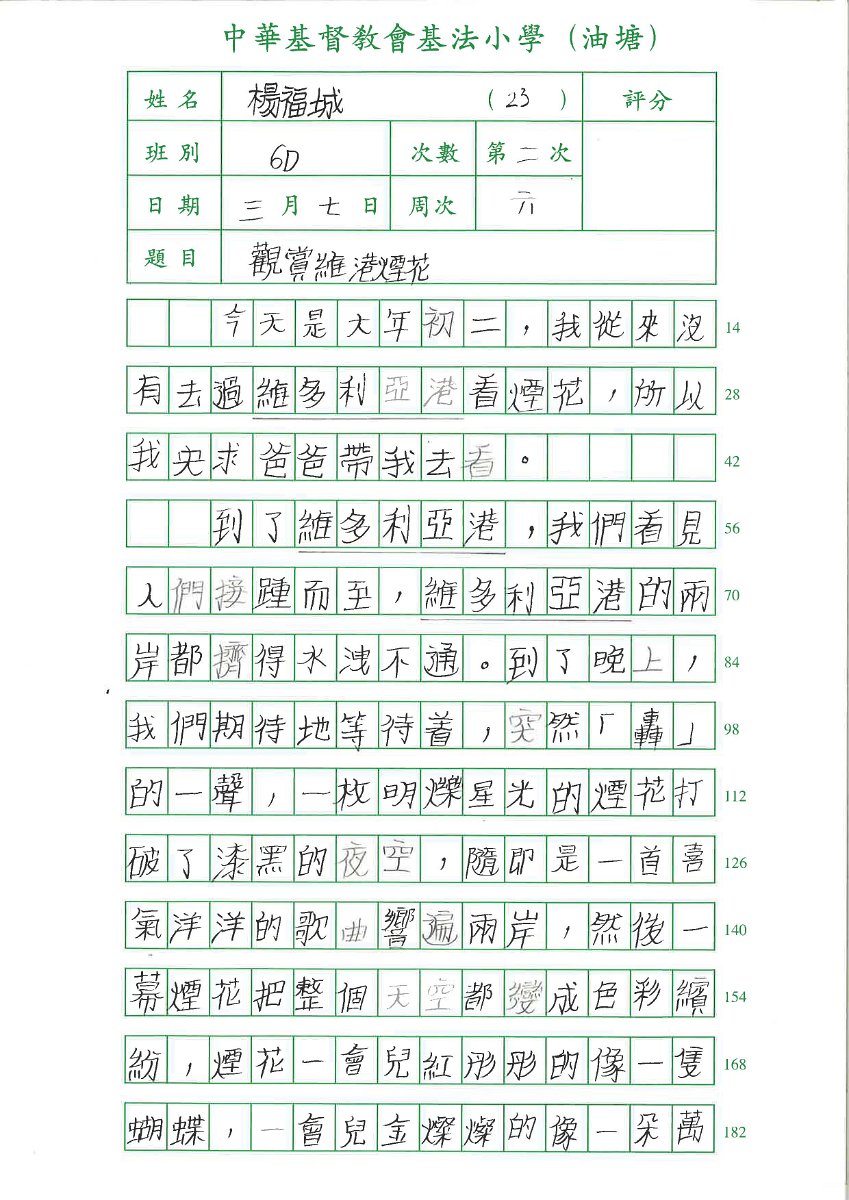 中華基督教會基法小學（油塘）
姓名 楊福城 （23） 評分
班別 6D 次數 第二次
日期 三月七日 周次 六
題目 觀賞維港煙花
今天是大年初二，我從來沒 14
有去過維多利亞港看煙花，所以 28
我央求爸爸帶我去看。 42
到了維多利亞港，我們看見 56
人們接踵而至，維多利亞港的兩 70
岸都擠得水洩不通。到了晚上， 84
我們期待地等待着，突然「轟」 98
的一聲，一枚明爍星光的煙花打 112
破了漆黑的夜空，隨即是一首喜 126
氣洋洋的歌曲響遍兩岸，然後一 140
幕煙花把整個天空都變成色彩繽 154
紛，煙花一會兒紅彤彤的像一隻 168
蝴蝶，一會兒金燦燦的像一朵萬 182